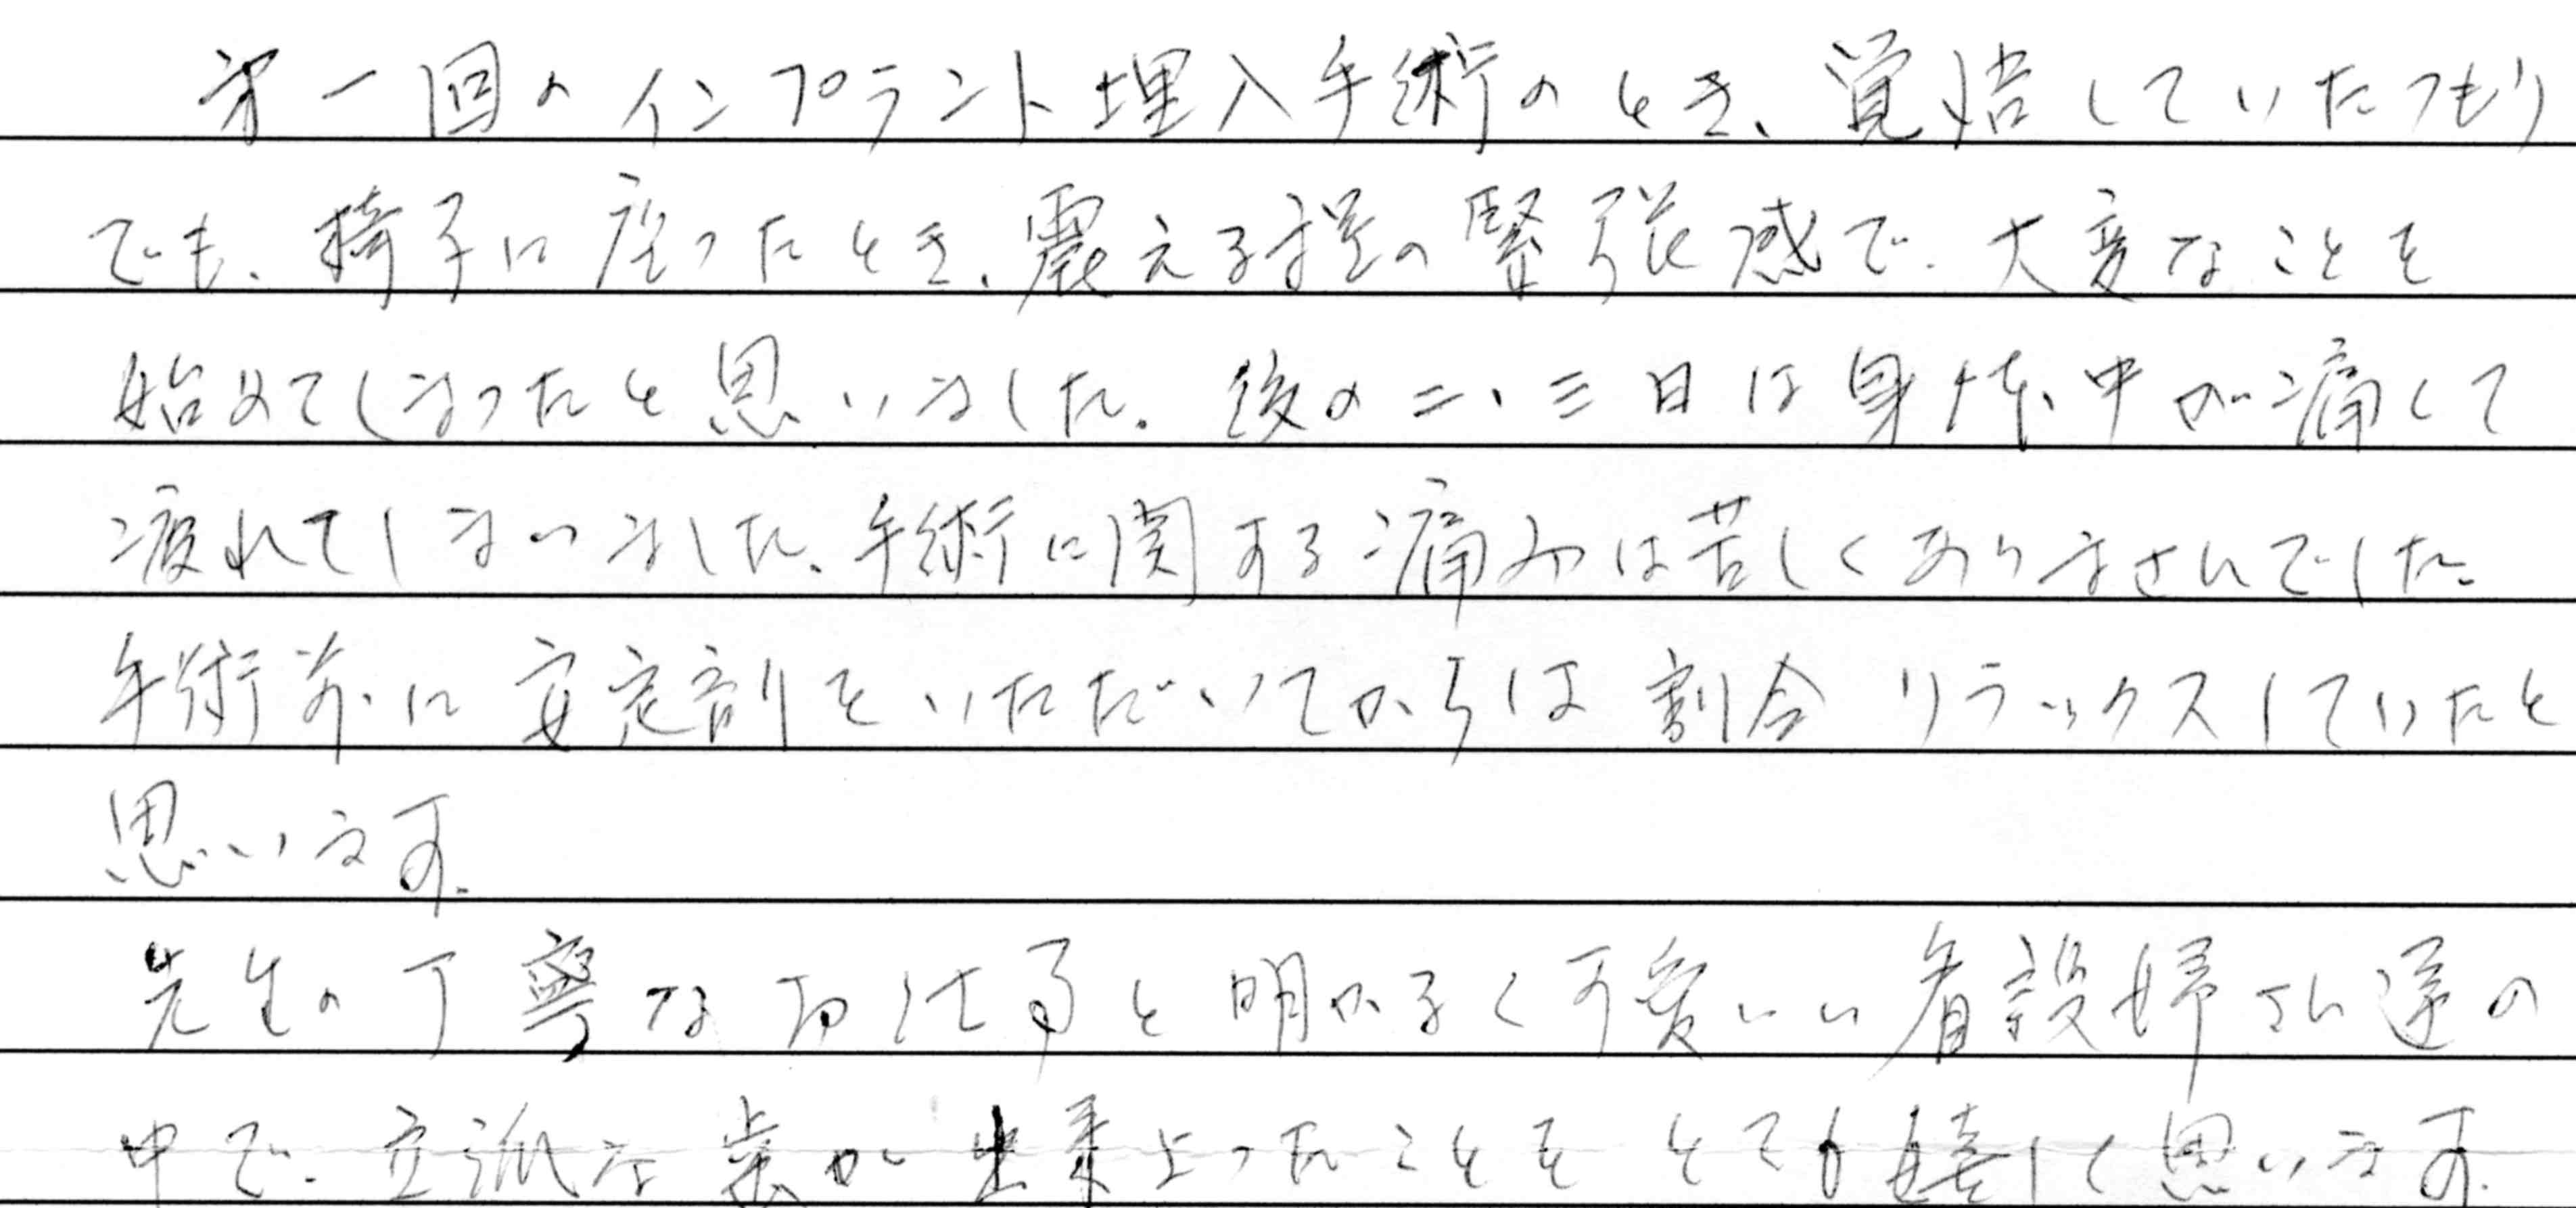 第一回のインプラント埋入手術のとき、覚悟していたつもり
でも、椅子に座ったとき、震える程の緊張感で、大変なことを
始めてしまったと思いました。後の二、三日は身体中が痛くて
疲れてしまいました。手術に関する痛みは苦しくありませんでした。
手術前に安定剤をいただいてからは割合リラックスしていたと
思います。
先生の丁寧なお仕事と明かるく可愛いい看護婦さん達の
中で、立派な歯が出来上ったことをとても嬉しく思います。